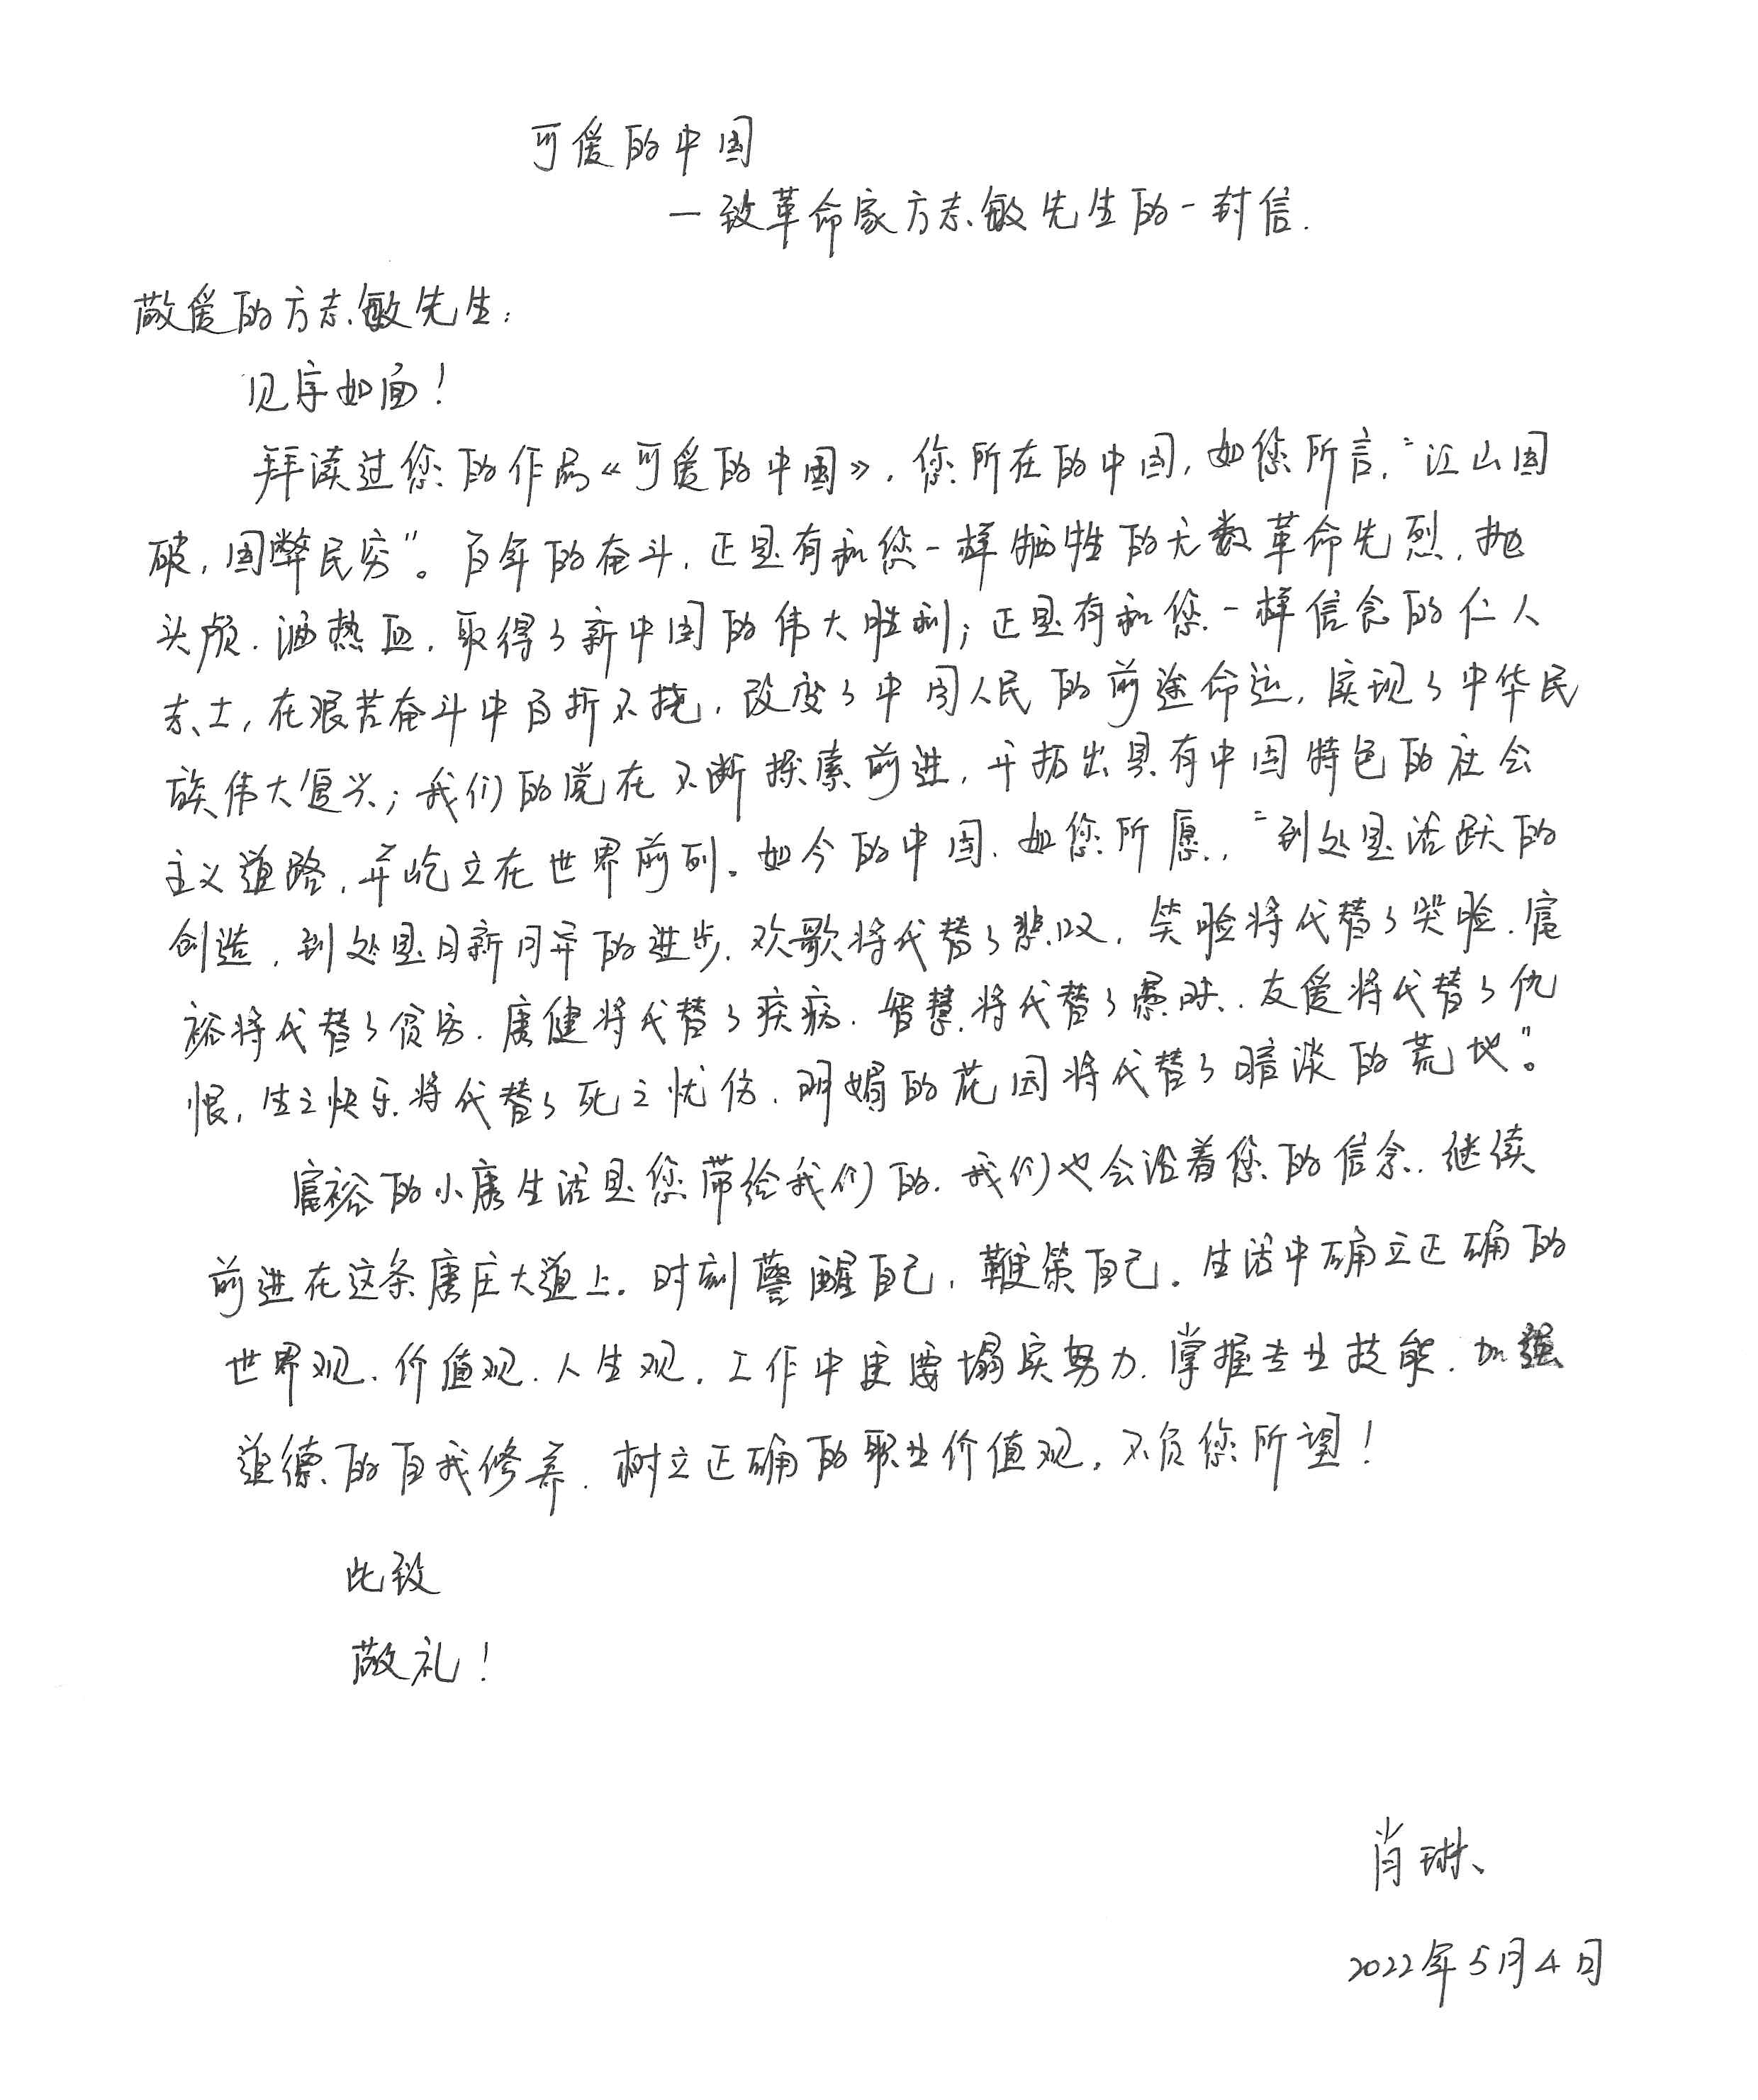 可爱的中国
—致革命家方志敏先生的一封信.
敬爱的方志敏先生:
见字如面!
拜读过您的作品《可爱的中国》,您所在的中国,如您所言,“江山国
破,国弊民穷”。百年的奋斗,正是有和您一样牺牲的无数革命先烈,抛
头颅、洒热血,取得了新中国的伟大胜利;正是有和您一样信念的仁人
志士,在艰苦奋斗中百折不挠,改变了中国人民的前途命运,实现了中华民
族伟大复兴;我们的党在不断探索前进,开拓出具有中国特色的社会
主义道路,并屹立在世界前列。如今的中国、如您所愿,“到处是活跃的
创造,到处是日新月异的进步,欢歌将代替了悲叹,笑脸将代替了哭脸,富
裕将代替了贫穷,康健将代替了疾病,智慧将代替了愚昧,友爱将代替了仇
恨,生之快乐将代替了死之忧伤,明媚的花园将代替了暗淡的荒地”。
富裕的小康生活是您带给我们的,我们也会沿着您的信念,继续
前进在这条康庄大道上。时刻警醒自己,鞭策自己。生活中确立正确的
世界观、价值观、人生观。工作中更要塌实努力,掌握专业技能,加强
道德的自我修养,树立正确的职业价值观。不负您所望!
此致
敬礼!
肖琳
2022年5月4日